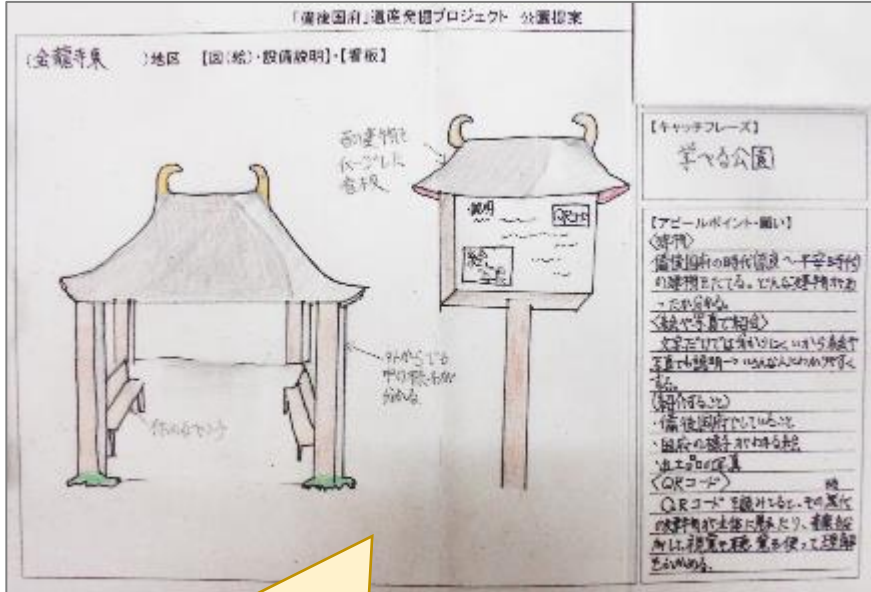 「備後国府」遺産発掘プロジェクト 公園提案
(金龍寺東 )地区 【図(絵)・設備説明】・【看板】
昔の建物を
イメージした
看板
説明
QRコード
絵
写真
外からでも
中の様子が
分かる
休めるベンチ
【キャッチフレーズ】
学べる公園
【アピールポイント・願い】
〈建物〉
備後国府の時代(奈良〜平安時代)
の建物をたてる。どんな建物があ
ったか分かる。
〈絵や写真で紹介〉
文字だけでは分かりにくいから絵や
写真でも説明→いろんな人にわかりやすく
する。
〈紹介すること〉
・備後国府でしていること
・国府の様子がわかる絵
・出土品の写真
〈QRコード〉
QRコードを読みとると、その時代
の建物が立体に見えたり、
視覚や聴覚を使って理解
を深める。